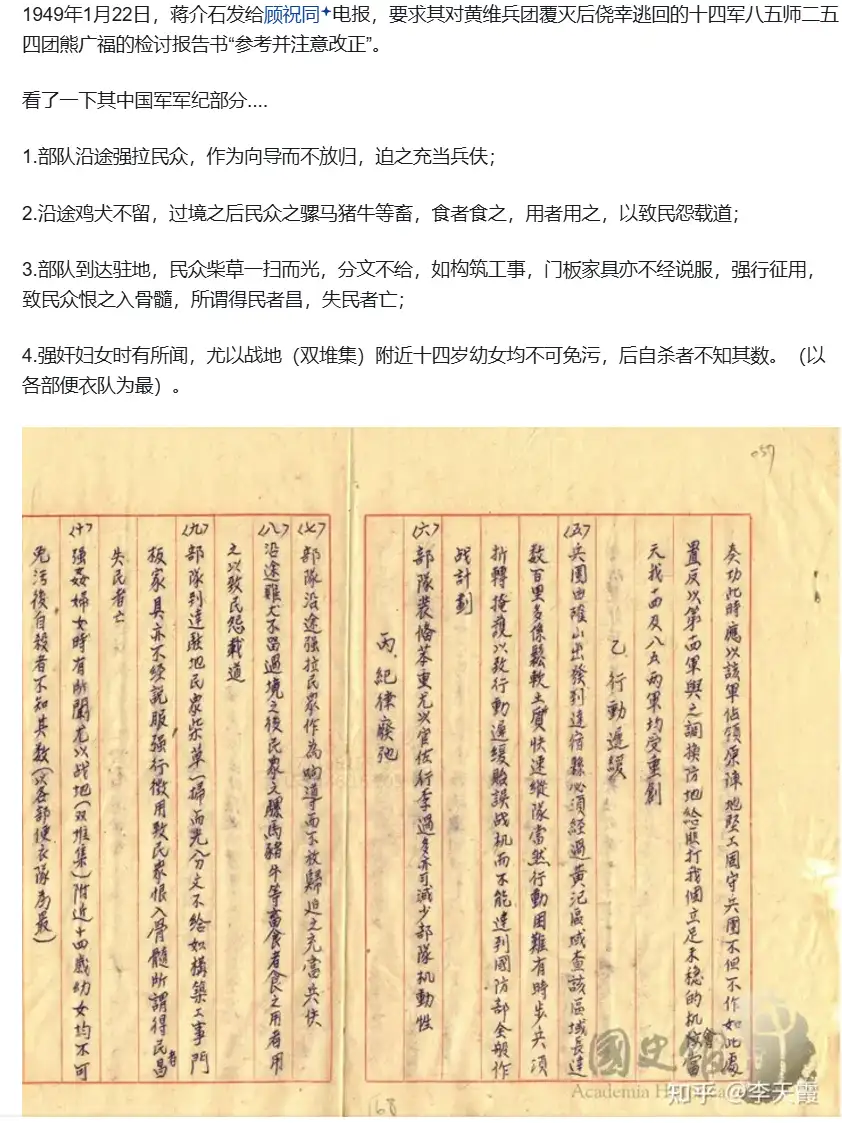 1949年1月22日，蒋介石发给顾祝同电报，要求其对黄维兵团覆灭后侥幸逃回的十四军八五师二五
四团熊广福的检讨报告书“参考并注意改正”。
看了一下其中国军军纪部分....
1.部队沿途强拉民众，作为向导而不放归，迫之充当兵伕；
2.沿途鸡犬不留，过境之后民众之骡马猪牛等畜，食者食之，用者用之，以致民怨载道；
3.部队到达驻地，民众柴草一扫而光，分文不给，如构筑工事，门板家具亦不经说服，强行征用，
致民众恨之入骨髓，所谓得民者昌，失民者亡；
4.强奸妇女时有所闻，尤以战地（双堆集）附近十四岁幼女均不可免污，后自杀者不知其数。（以
各部便衣队为最）。
057
奏功此時應以該軍佔領原陣地堅工固守兵團不但不作如此處
置反以第十四軍與之調換防地給匪打我個立足未穩的机會當
天我十四及八五兩軍均受重創
乙、行動遲緩
(五)兵團由確山出發到達宿縣必須經過黃氾區域查該區域長達
數百里多係鬆軟土質快速縱隊當然行動困難有時步兵須
折轉掩護以致行動遲緩貽誤战机而不能達到國防部全般作
战計劃
(六)部隊裝備笨重尤以官佐行李過多亦可減少部隊机動性
丙、紀律廢弛
(七)部隊沿途强拉民眾作為响導而不放歸迫之充當兵伕
(八)沿途雞犬不留過境之後民眾之騾馬豬牛等畜食者食之用者用
之以致民怨載道
(九)部隊到達駐地民眾柴草一掃而光分文不給如構築工事門
板家具亦不經說服强行徵用致民眾恨入骨髓所謂得民者昌
失民者亡
(十)强姦婦女時有所聞尤以战地(双堆集)附近十四歲幼女均不可
免污後自殺者不知其数(以各部便衣隊為最)
國史館
Academia H
知乎 @李天霞
168